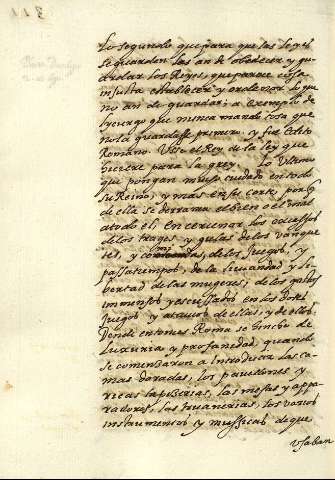 Lo segundo que para que las leyes
se guarden las an de obedecer y gu-
ardar los Reyes, que parece cosa
insulta establecer y ordenar lo que
no an de guardar: a exemplo de
lycurgo que nunca mando cosa que
no la guardasse primero. y fue Edito
Romano. Use el Rey de la ley que
hiciere para la grey. Lo Ultimo
que pongan mucho cuidado en todo
su Reino, y mas en su corte, porq
de ella se derrama el bien o el mal
a todo el, en cercenar los excessos
de los trages y gulas de los vanque
tes, y comidas, de los Juegos, y
passatiempos, de la liviandad y li-
bertad de las mugeres, de los gastos
inmensos y escussados en los dotes
Juegos y atavios de ellas, y de ellos.
Dende entonces Roma se hincho de
Luxuria y profanidad, quando
se comenzaron a introducir las ca-
mas doradas, los pavellones y
ricas tapicerias, las messas y appa-
radores, las truanerias, los varios
instrumentos y mussicas de que
usaban